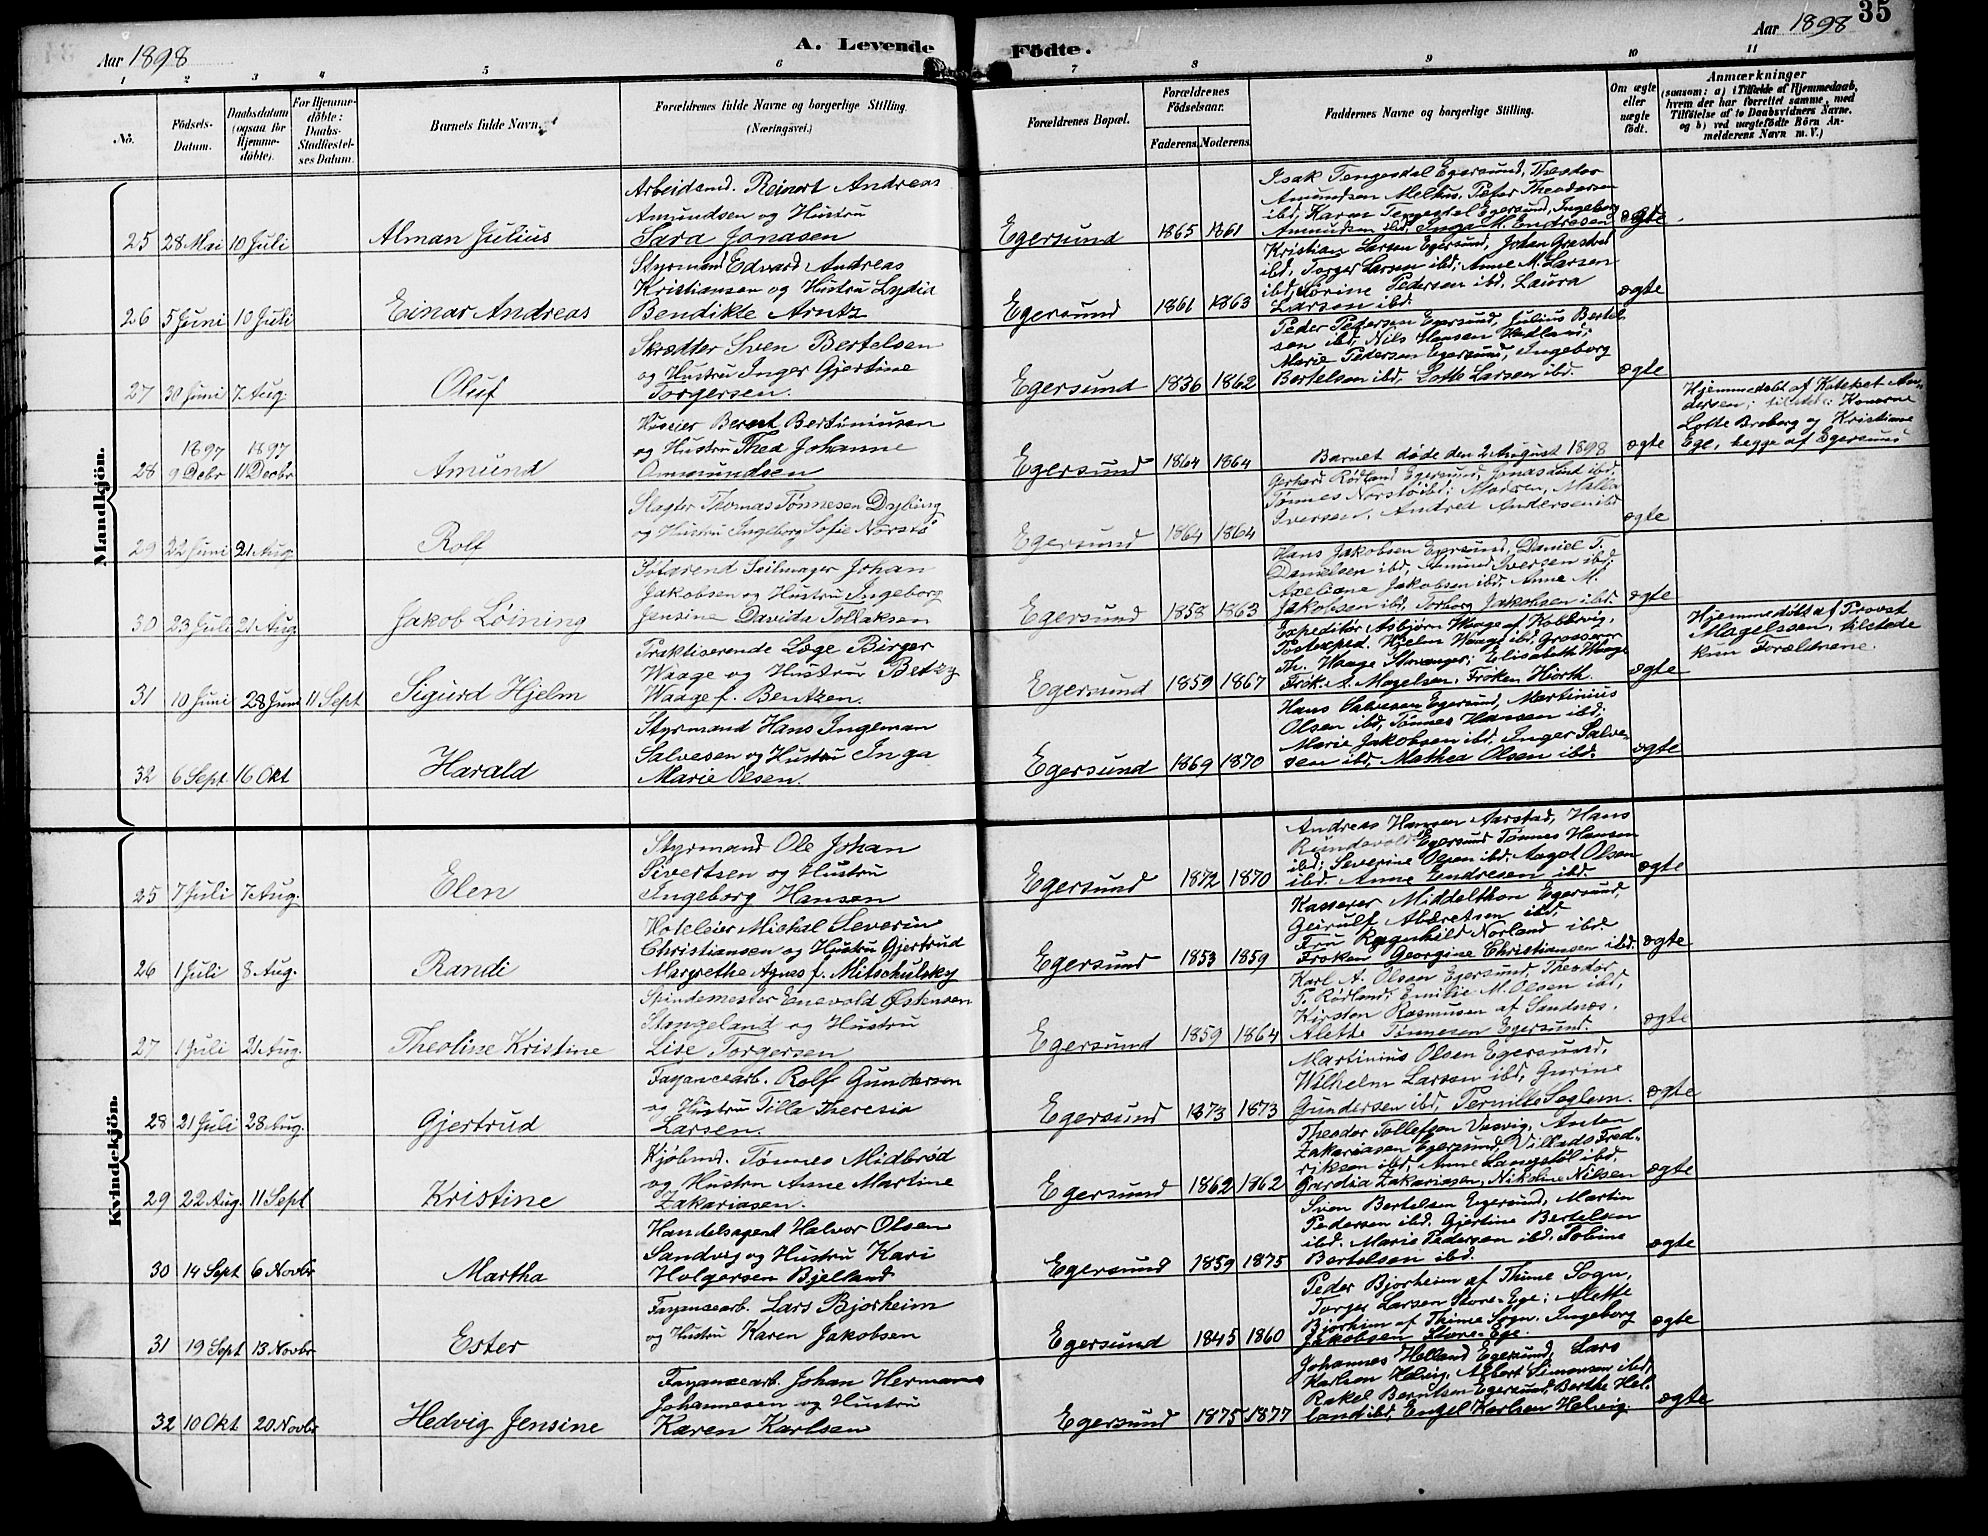 Aar 1898 A. Levende Fødte. Aar 1898 35
1 2 3 4 5 6 7 8 9 10 11
No.
Fødsels-Datum.
Daabsdatum (ogsaa for Hjemmedøbte).
For Hjemmedøbte: Daabs-Stadfæstelses Datum.
Barnets fulde Navn.
Forældrenes fulde Navne og borgerlige Stilling.
(Næringsvei.)
Forældrenes Bopæl.
Forældrenes Fødselsaar.
Faderens. Moderens.
Faddernes Navne og borgerlige Stilling.
Om ægte eller uægte født.
Anmærkninger
(saasom: a) i Tilfælde af Hjemmedaab, hvem der har forrettet samme, med Tilføielse af to Daabsvidners Navne. og b) ved uægtefødte Börn Anmelderens Navn m. V.)
Mandkjön.
25 28 Mai 10 Juli Alman Julius
Arbeidsmd. Reinert Andreas
Amundsen og Hustru
Sara Jonasen
Egersund 1865 1861
Isak Tengesdal Egersund, Theodor
Amundsen Melhus, Peter Theodorsen
ibd, Karen Tengesdal Egersund, Ingeborg
Amundsen ibd, Inga M. Endresen
ægte
26 5 Juni 10 Juli Einar Andreas
Styrmand Edvard Andreas
Kristiansen og Hustru Lydia
Bendikte Arntz
Egersund 1861 1863
Kristian Larsen Egersund, Johan
ibd, Torger Larsen ibd; Anne M. Larsen
ibd, Sørine Pedersen ibd. Laura
Larsen ibd.
ægte
27 30 Juni 7 Aug. Oluf
Skrædder Sven Bertelsen
og Hustru Inger Gjertine
Torgersen.
Egersund 1836 1862
Peder Pedersen Egersund, Julius Bertel
sen ibd, Nils Hansen Hadland;
Marie Pedersen Egersund, Ingeborg
Bertelsen ibd, Lotte Larsen ibd.
ægte
28 1897 9 Debr 1897 11 Decbr Amund
Huseier Bernt Bertiniusen
og Hustru Thea Johanne
Omundsen
Egersund 1864 1864
Barnet døde den 2 August 1898
ægte
Hjemmedøbt af Kateket An-
dersen; tilstede: Konerne
Lotte Broberg og Kristiane
Ege, begge af Egersund
29 22 Juni 21 Aug. Rolf
Slagter Thomas Tønnesen Dybing
og Hustru Ingeborg Sofie Norstø
Egersund 1864 1864
Gerhard Rødland Egersund, Jonas Lind ibd,
Tønnes Norstø ibd; Malla
Iversen, Andrea Andersen ibd
ægte
30 23 Juli 21 Aug Jakob Løining
Søfarend Seilmager Johan
Jakobsen og Hustru Ingeborg
Jensine Davida Tollaksen
Egersund 1858 1863
Hans Jakobsen Egersund, Daniel T.
Danielsen ibd, Amund Iversen ibd;
Axeliane Jakobsen ibd, Anne M.
Jakobsen ibd, Torborg Jakobsen ibd.
ægte
31 10 Juni 28 Juni 11 Sept Sigurd Hjelm
Praktiserende Læge Birger
Waage og Hustru Betzy
Waage f. Bentzen.
Egersund 1859 1867
Expeditør Asbjørn Waage af Kobbvig,
Postexped. Hjelm Waage ibd, Grosserer
Th. Waage Stavanger; Elisabeth Waage
Frøk. A. Magelsen, Frøken Hiorth.
ægte
Hjemmedøbt af Provst
Magelssen, tilstede
kun Forældrene.
32 6 Sept 16 Okt Harald
Styrmand Hans Ingeman
Salvesen og Hustru Inga
Marie Olsen.
Egersund 1869 1870
Hans Salvesen Egersund, Martinius
Olsen ibd, Tønnes Hansen ibd;
Marie Jakobsen ibd, Inger Salve-
sen ibd, Mathea Olsen ibd.
ægte
Kvindekjön.
25 7 Juli 7 Aug. Elen
Styrmand Ole Johan
Sivertsen og Hustru
Ingeborg Hansen
Egersund 1872 1870
Andreas Hansen Aarstad, Hans
Rundevold Egersund Tønnes Hansen
ibd; Severine Olsen ibd. Aagot Olsen
ibd. Anne Endresen ibd.
ægte
26 1 Juli 8 Aug. Randi
Hoteleier Michal Severin
Christiansen og Hustru Gjertrud
Margrethe Agnes f. Mitschulsky
Egersund 1853 1859
Kasserer Middelthon Egersund,
Geirulf Albretsen ibd;
Fru Ragnhild Norland ibd.
Frøken Georgine Christiansen ibd.
ægte
27 1 Juli 21 Aug. Theoline Kristine
Spindemester Enevold Østensen
Stangeland og Hustru
Lise Torgersen
Egersund 1859 1864
Karl A. Olsen Egersund, Theodor
T. Rødland; Emilie M. Olsen ibd,
Kirsten Rasmusen af Sandnæs,
Alette Tønnesen Egersund.
ægte
28 21 Juli 28 Aug. Gjertrud
Fayancearb. Rolf Gundersen
og Hustru Tilla Theresia
Larsen.
Egersund 1873 1873
Martinius Olsen Egersund,
Wilhelm Larsen ibd; Gurine
Gundersen ibd, Pernille Seglem.
ægte
29 22 Aug. 11 Sept Kristine
Kjøbmd. Tønnes Midbrød
og Hustru Anne Martine
Zakariasen.
Egersund 1862 1862
Theodor Tollefsen Anton
Zakariasen Egersund, Villads Fred-
riksen ibd, Anne Langstøl ibd,
Gardia Zakariasen, Nikoline Nilsen
ægte
30 14 Sept 6 Novbr Martha
Handelsagent Halvor Olsen
Sandvig og Hustru Kari
Holgersen Bjelland
Egersund 1859 1875
Sven Bertelsen Egersund, Martin
Pedersen ibd. Gjertine Bertelsen
ibd. Marie Pedersen ibd. Tobine
Bertelsen ibd.
ægte
31 19 Sept 13 Novbr Ester
Fayancearb. Lars Bjorheim
og Hustru Karen Jakobsen
Egersund 1845 1860
Peder Bjorheim af Thime Sogn,
Torger Larsen Store-Ege; Alette
Bjorheim af Thime Sogn. Ingeborg
Jakobsen Store-Ege.
ægte
32 10 Okt 20 Novbr Hedvig Jensine
Fayancearb. Johan Herman
Johannesen og Hustru
Karen Karlsen
Egersund 1875 1877
Johannes Helland Egersund, Lars
Karlsen Helvig, Albert Simonsen ibd,
Rakel Berntsen Egersund, Berthe Hel-
land ibd, Engel Karlsen Helvig.
ægte